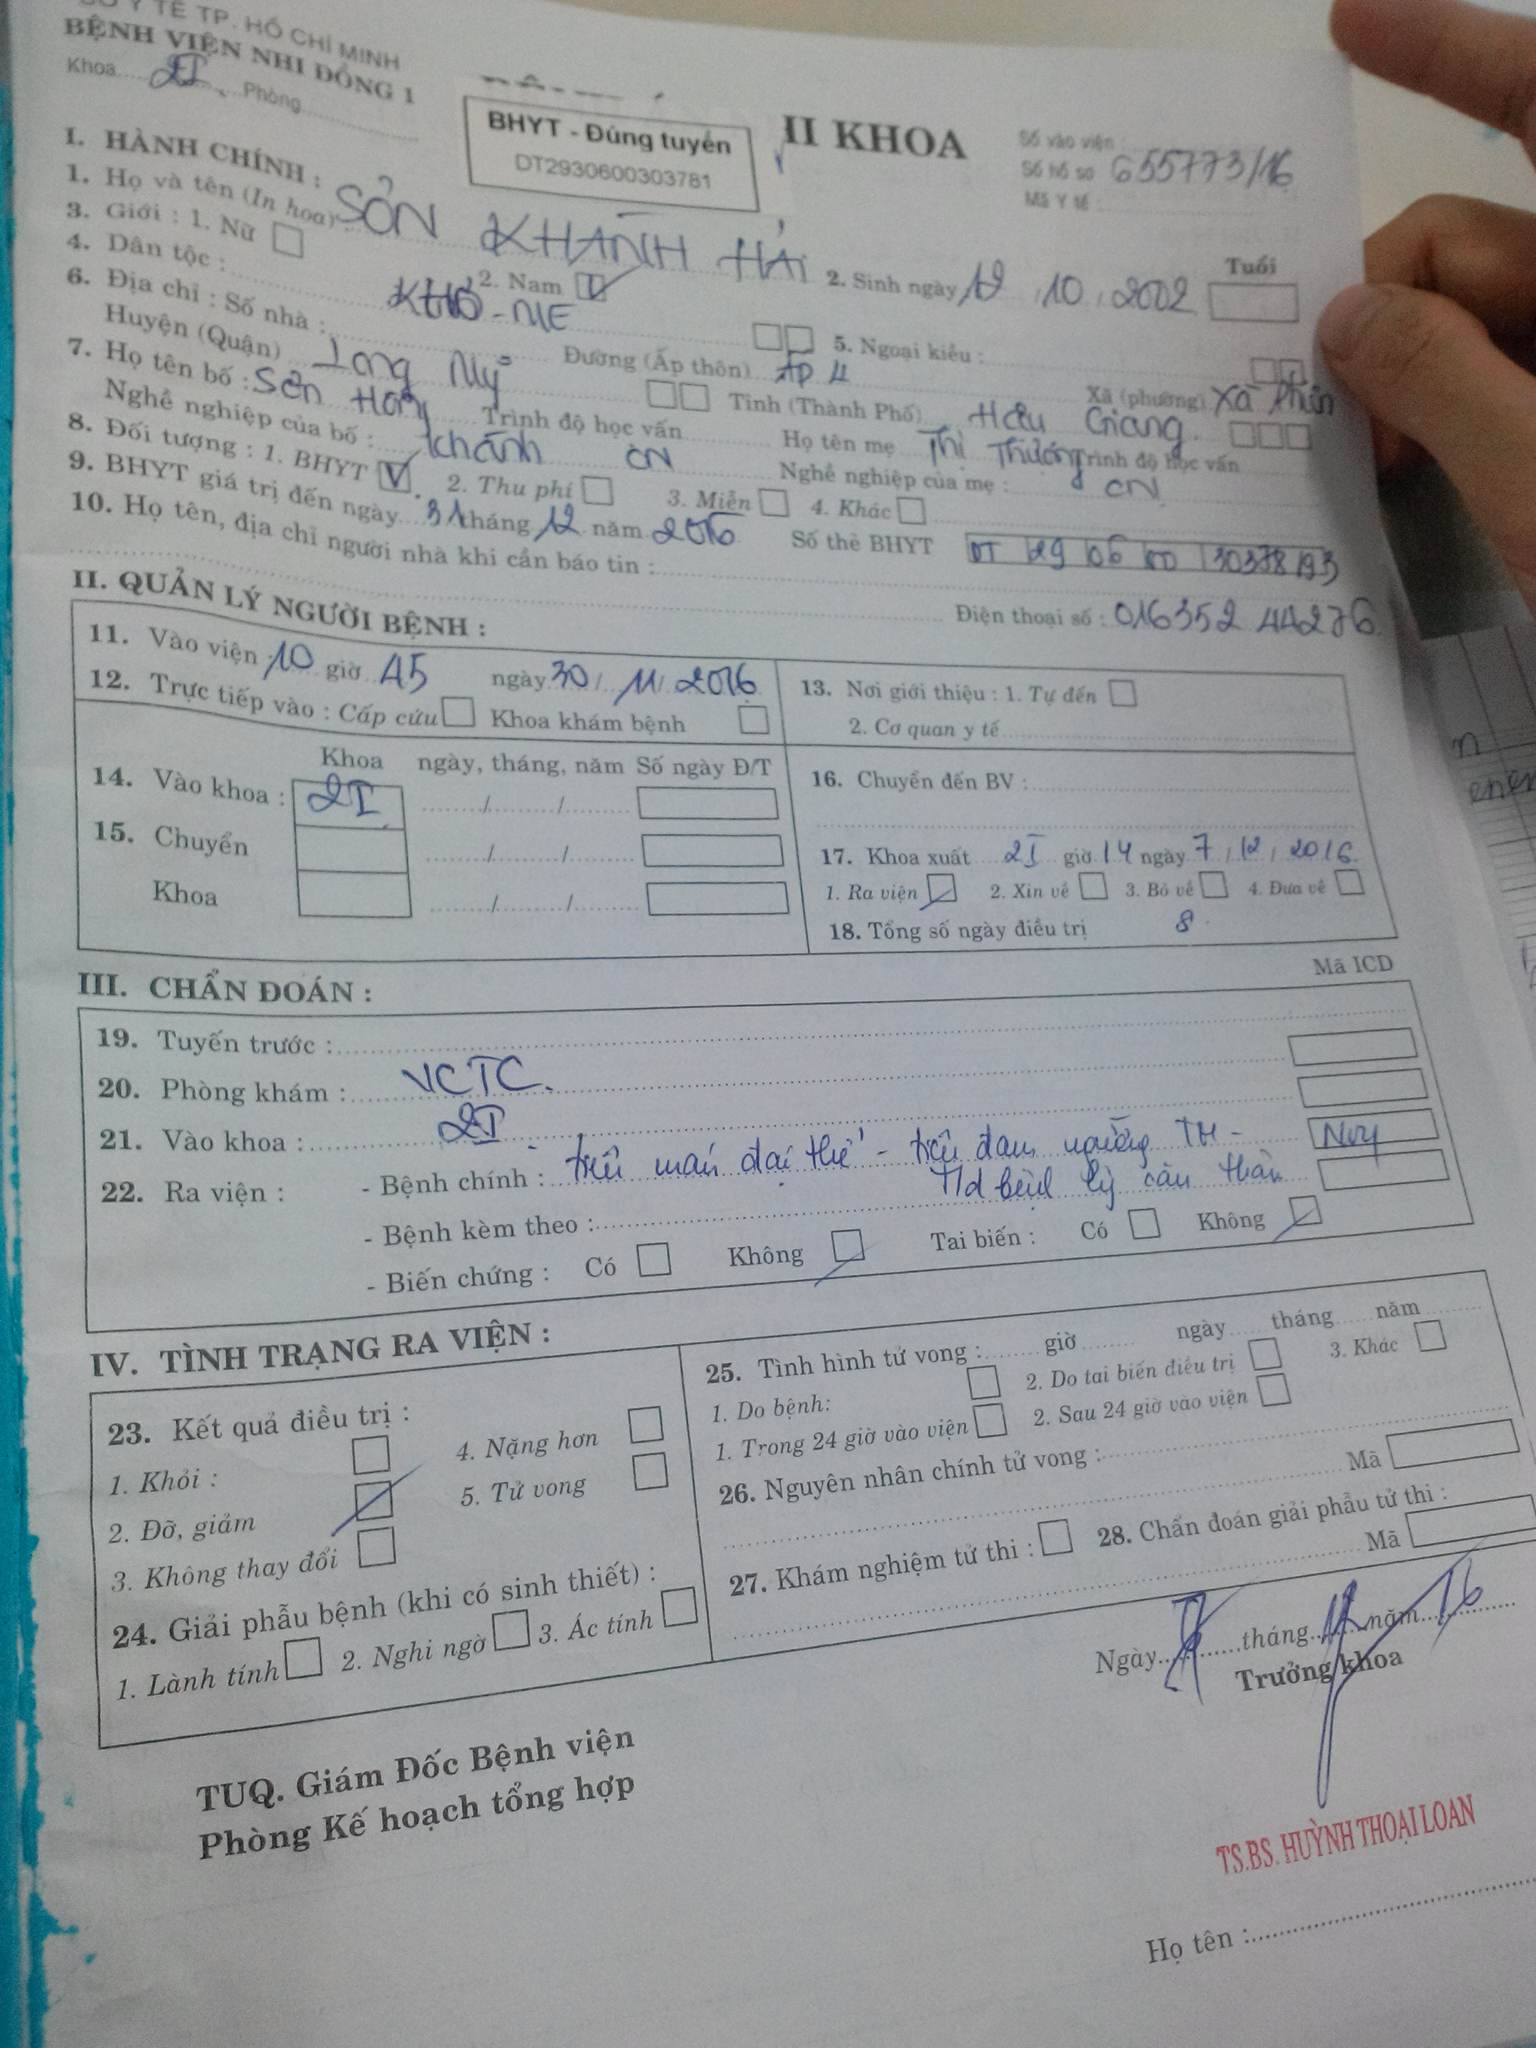 SỞ Y TẾ TP. HỒ CHÍ MINH
BỆNH VIỆN NHI ĐỒNG 1
Khoa 2I Phòng
BHYT - Đúng tuyến
DT2930600303781
II KHOA
Số vào viện :
Số hồ sơ 655773/16
Mã Y tế :
I. HÀNH CHÍNH :
1. Họ và tên (In hoa) SƠN KHANH HẢI 2. Sinh ngày 19 / 10 / 2002 Tuổi
3. Giới : 1. Nữ 2. Nam V
4. Dân tộc : KHƠ-ME 5. Ngoại kiều :
6. Địa chỉ : Số nhà : Đường (Ấp thôn) ẤP 4 Xã (phường) Xà Phiên
Huyện (Quận) Long Mỹ Tỉnh (Thành Phố) Hậu Giang
7. Họ tên bố : Sơn Hoàng Khánh Trình độ học vấn Họ tên mẹ Thị Thương Trình độ học vấn
Nghề nghiệp của bố : CN Nghề nghiệp của mẹ : CN
8. Đối tượng : 1. BHYT V 2. Thu phí 3. Miễn 4. Khác
9. BHYT giá trị đến ngày 31 tháng 12 năm 2016 Số thẻ BHYT DT 29 06 00 30378193
10. Họ tên, địa chỉ người nhà khi cần báo tin :
Điện thoại số : 01635244276
II. QUẢN LÝ NGƯỜI BỆNH :
11. Vào viện : 10 giờ 45 ngày 30 / 11 / 2016
12. Trực tiếp vào : Cấp cứu Khoa khám bệnh
13. Nơi giới thiệu : 1. Tự đến
2. Cơ quan y tế
Khoa ngày, tháng, năm Số ngày Đ/T
14. Vào khoa : 2I / /
15. Chuyển / /
Khoa / /
16. Chuyển đến BV :
17. Khoa xuất 2I giờ 14 ngày 7 / 12 / 2016
1. Ra viện 2. Xin về 3. Bỏ về 4. Đưa về
18. Tổng số ngày điều trị 8
III. CHẨN ĐOÁN :
Mã ICD
19. Tuyến trước :
20. Phòng khám : VCTC.
21. Vào khoa : 2I
22. Ra viện : - Bệnh chính : tiểu máu đại thể - tiểu đạm ngưỡng TH -
T/d bệnh lý cầu thận
- Bệnh kèm theo :
- Biến chứng : Có Không Tai biến : Có Không
IV. TÌNH TRẠNG RA VIỆN :
23. Kết quả điều trị :
1. Khỏi : 4. Nặng hơn
2. Đỡ, giảm 5. Tử vong
3. Không thay đổi
24. Giải phẫu bệnh (khi có sinh thiết) :
1. Lành tính 2. Nghi ngờ 3. Ác tính
25. Tình hình tử vong : giờ ngày tháng năm
1. Do bệnh: 2. Do tai biến điều trị 3. Khác
1. Trong 24 giờ vào viện 2. Sau 24 giờ vào viện
26. Nguyên nhân chính tử vong :
Mã
27. Khám nghiệm tử thi : 28. Chẩn đoán giải phẫu tử thi :
Mã
Ngày 7 tháng 12 năm 16
Trưởng khoa
TUQ. Giám Đốc Bệnh viện
Phòng Kế hoạch tổng hợp
TS.BS. HUỲNH THOẠI LOAN
Họ tên :